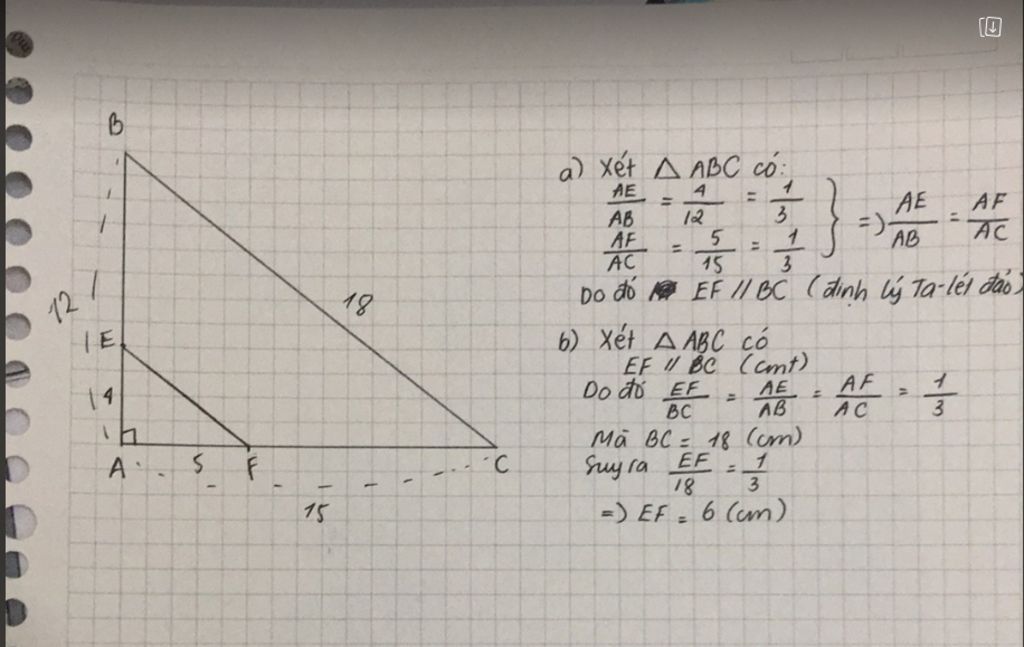 B
12
18
E
4
A
5
F
C
15
a) Xét △ ABC có:
AE/AB = 4/12 = 1/3
AF/AC = 5/15 = 1/3
} => AE/AB = AF/AC
Do đó EF // BC (định lý Ta-lét đảo)
b) Xét △ ABC có
EF // BC (cmt)
Do đó EF/BC = AE/AB = AF/AC = 1/3
Mà BC = 18 (cm)
Suy ra EF/18 = 1/3
=> EF = 6 (cm)